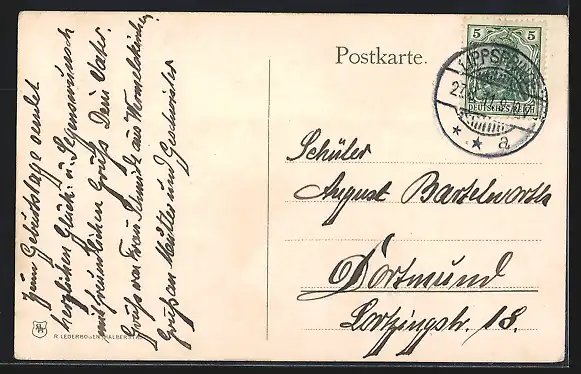 Postkarte.
5 5
DEUTSCHES REICH
LIPPSPRINGE
a
Schüler
August Bartelworth
Dortmund
Lortzingstr. 18.
Zum Geburtstage sendet
herzlichen Glück- u. Segenswunsch
mit freundlichen Gruß Dein Vater.
Gruß von Frau Schmidt aus Wermelskirchen
Gruß an Mutter und Geschwister
R. LEDERBOGEN, HALBERSTADT